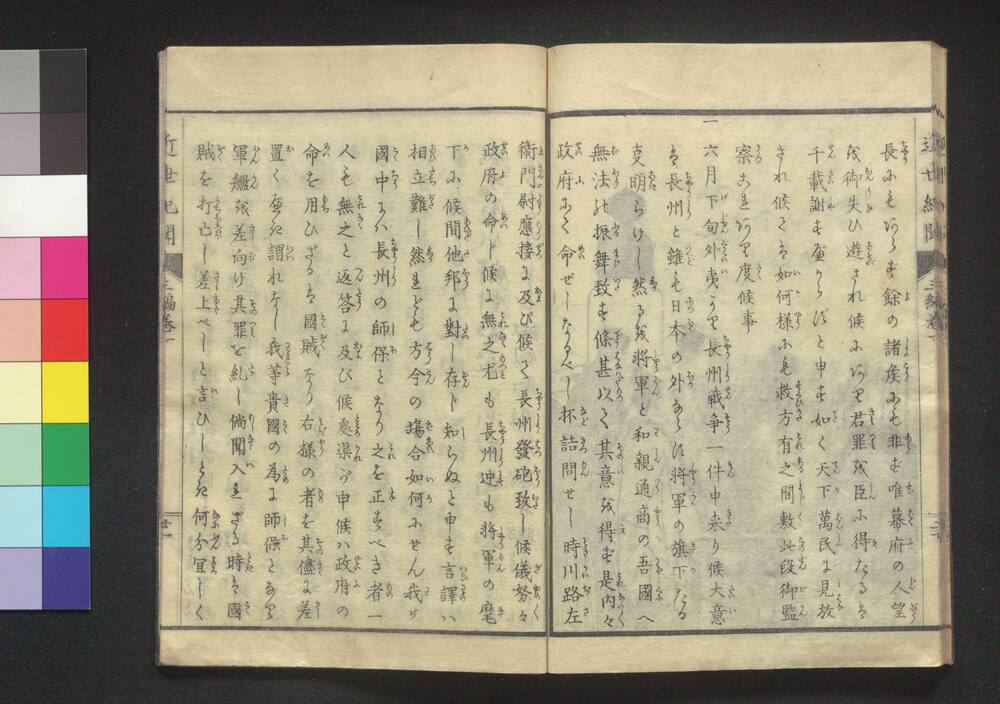 長にもあらず餘の諸矦にも非ず唯幕府の人望
を御失ひ遊され候にあり君罪を臣に得たるは
千載謝すべからずと申す如く天下萬民に見放
され候ては如何様にも救方有之間敷此段御監
察これあり度候事
一
六月下旬外夷より長州戦争一件申来り候大意
は長州と雖も日本の外ならず将軍の旗下たる
叓明らけし然るを将軍と和親通商の吾國へ
無法の振舞致す條甚以て其意を得ず是内々
政府にて命ぜしなるべし抔詰問せし時川路左
衛門尉應接に及び候て長州發砲致し候儀努々
政府の命し候に無之尤も長州迚も将軍の麾
下に候間他邦に對し存じ知らぬと申す言譯ハ
相立難し然れども方今の場合如何にせん我が
國中にハ長州の師保となり之を正すべき者一
人も無之と返答に及び候處渠が申候ハ政府の
命を用ひざるは國賊なり右様の者を其儘に差
置くべき謂れなし我等貴國の為に師保となり
軍艦を差向け其罪を糺し倘聞入れざる時は國
賊を打亡し差上べしと言ひしとき何分宜しく
近世紀聞
二編巻一